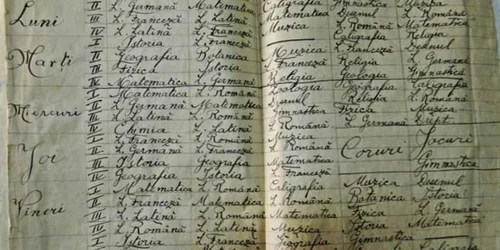 Luni II L. Germană Matematica Caligrafia Gimnastica Muzica
III L. Franceză L. Latină Matematica Desenul L. Română
IV L. Latină L. Franceză Muzica L. Română Matematica
I Istoria L. Franceză Caligrafia Religia
Marti II Geografia Botanica Muzica L. Franceză Desenul
III Fizica Istoria Franceza Religia L. Germană
IV Matematica L. Germană Religia Geologia Gimnastică
I Matematica L. Română Zoologia Geografia Caligrafia
Mercuri II L. Germană Matematica Desenul Religia L. Română
III L. Latină L. Română Gimnastica Fizica Muzica
IV Chimia L. Latină L. Română L. Germană Drept
I L. Franceză L. Română Muzica
Joi II L. Germană L. Franceză L. Română Coruri Jocuri
III Istoria Geografia Matematica Gimnastica
IV Geografia Istoria L. Franceză
I Matematica L. Română Caligrafia Muzica Desenul
Vineri II L. Franceză Matematica L. Română Botanica Istoria
III L. Latină L. Română Matematica Fizica L. Germană
IV L. Română L. Latină Matematica Desenul Istoria
I Istoria L. Franceză Geografia Gimnastica Muzica